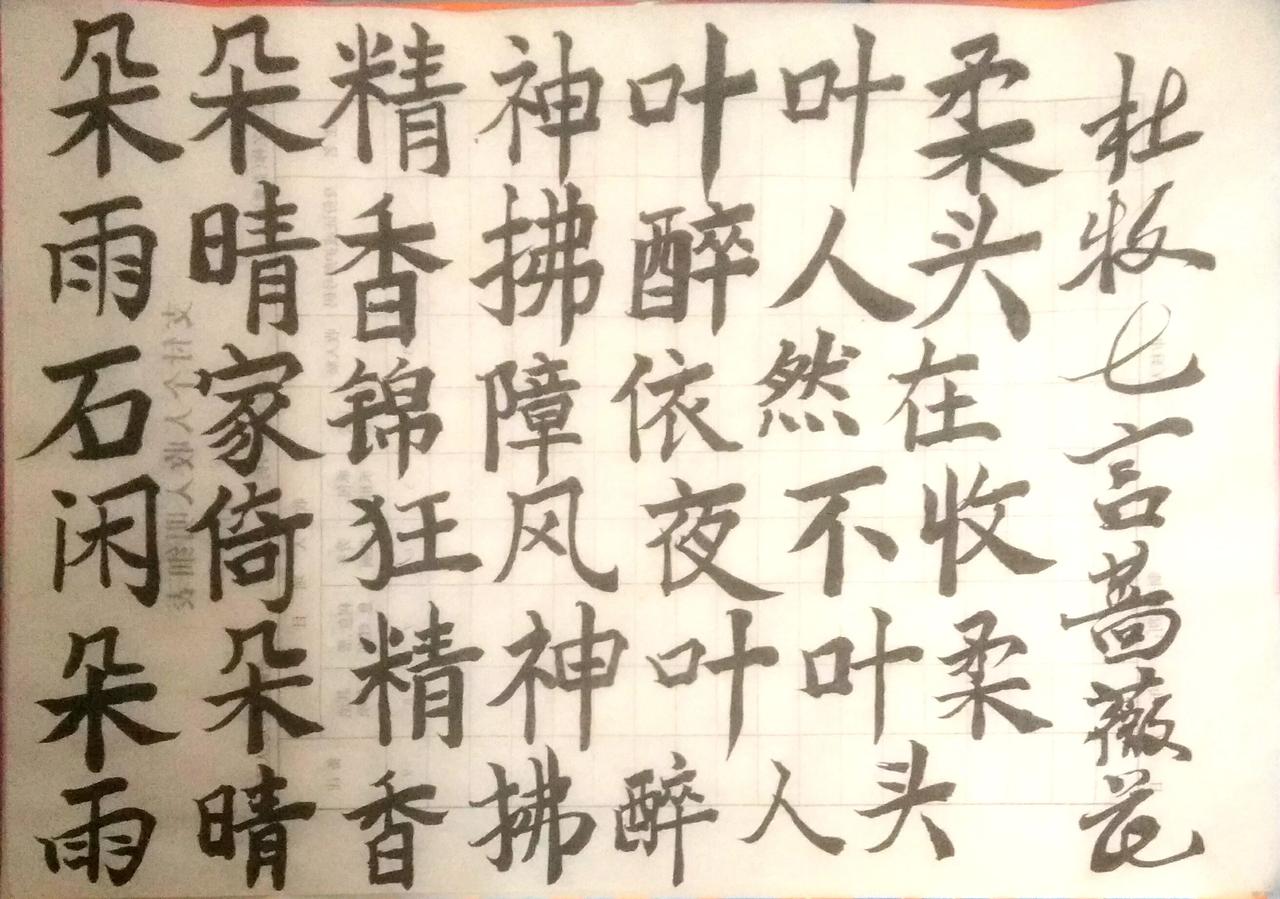 朵朵精神叶叶柔
雨晴香拂醉人头
石家锦障依然在
闲倚狂风夜不收
朵朵精神叶叶柔
雨晴香拂醉人头
杜牧七言蔷薇花